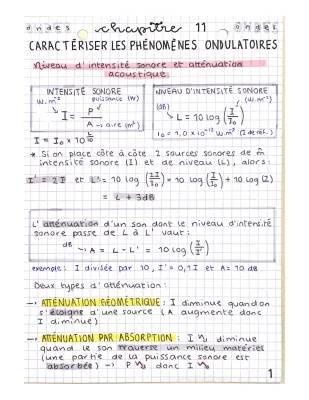 ondes chapitre 11 ondes
CARACTÉRISER LES PHÉNOMÈNES ONDULATOIRES
Niveau d'intensité sonore et atténuation
acoustique
INTENSITÉ SONORE
W.m⁻² puissance (W)
I = P/A → aire (m²)
I = I₀ × 10^(L/10)
NIVEAU D'INTENSITÉ SONORE
(dB) (W.m⁻²)
L = 10 log (I/I₀)
I₀ = 1,0 × 10⁻¹² W.m² (I de réf.)
* Si on place côte à côte 2 sources sonores de m̂
intensité sonore (I) et de niveau (L), alors:
I' = 2I et L' = 10 log (2I/I₀) = 10 log (I/I₀) + 10 log (2)
= L + 3dB
L'atténuation d'un son dont le niveau d'intensité
sonore passe de L à L' vaut:
dB → A = L - L' = 10 log (I/I')
exemple: I divisée par 10, I' = 0,1 I et A = 10 dB
Deux types d'atténuation:
→ ATTÉNUATION GÉOMÉTRIQUE: I diminue quand on
s'éloigne d'une source (A augmente donc
I diminue)
→ ATTÉNUATION PAR ABSORPTION: I ↘ diminue
quand le son traverse un milieu matériel
(une partie de la puissance sonore est
absorbée) → P ↘ donc I ↘
1